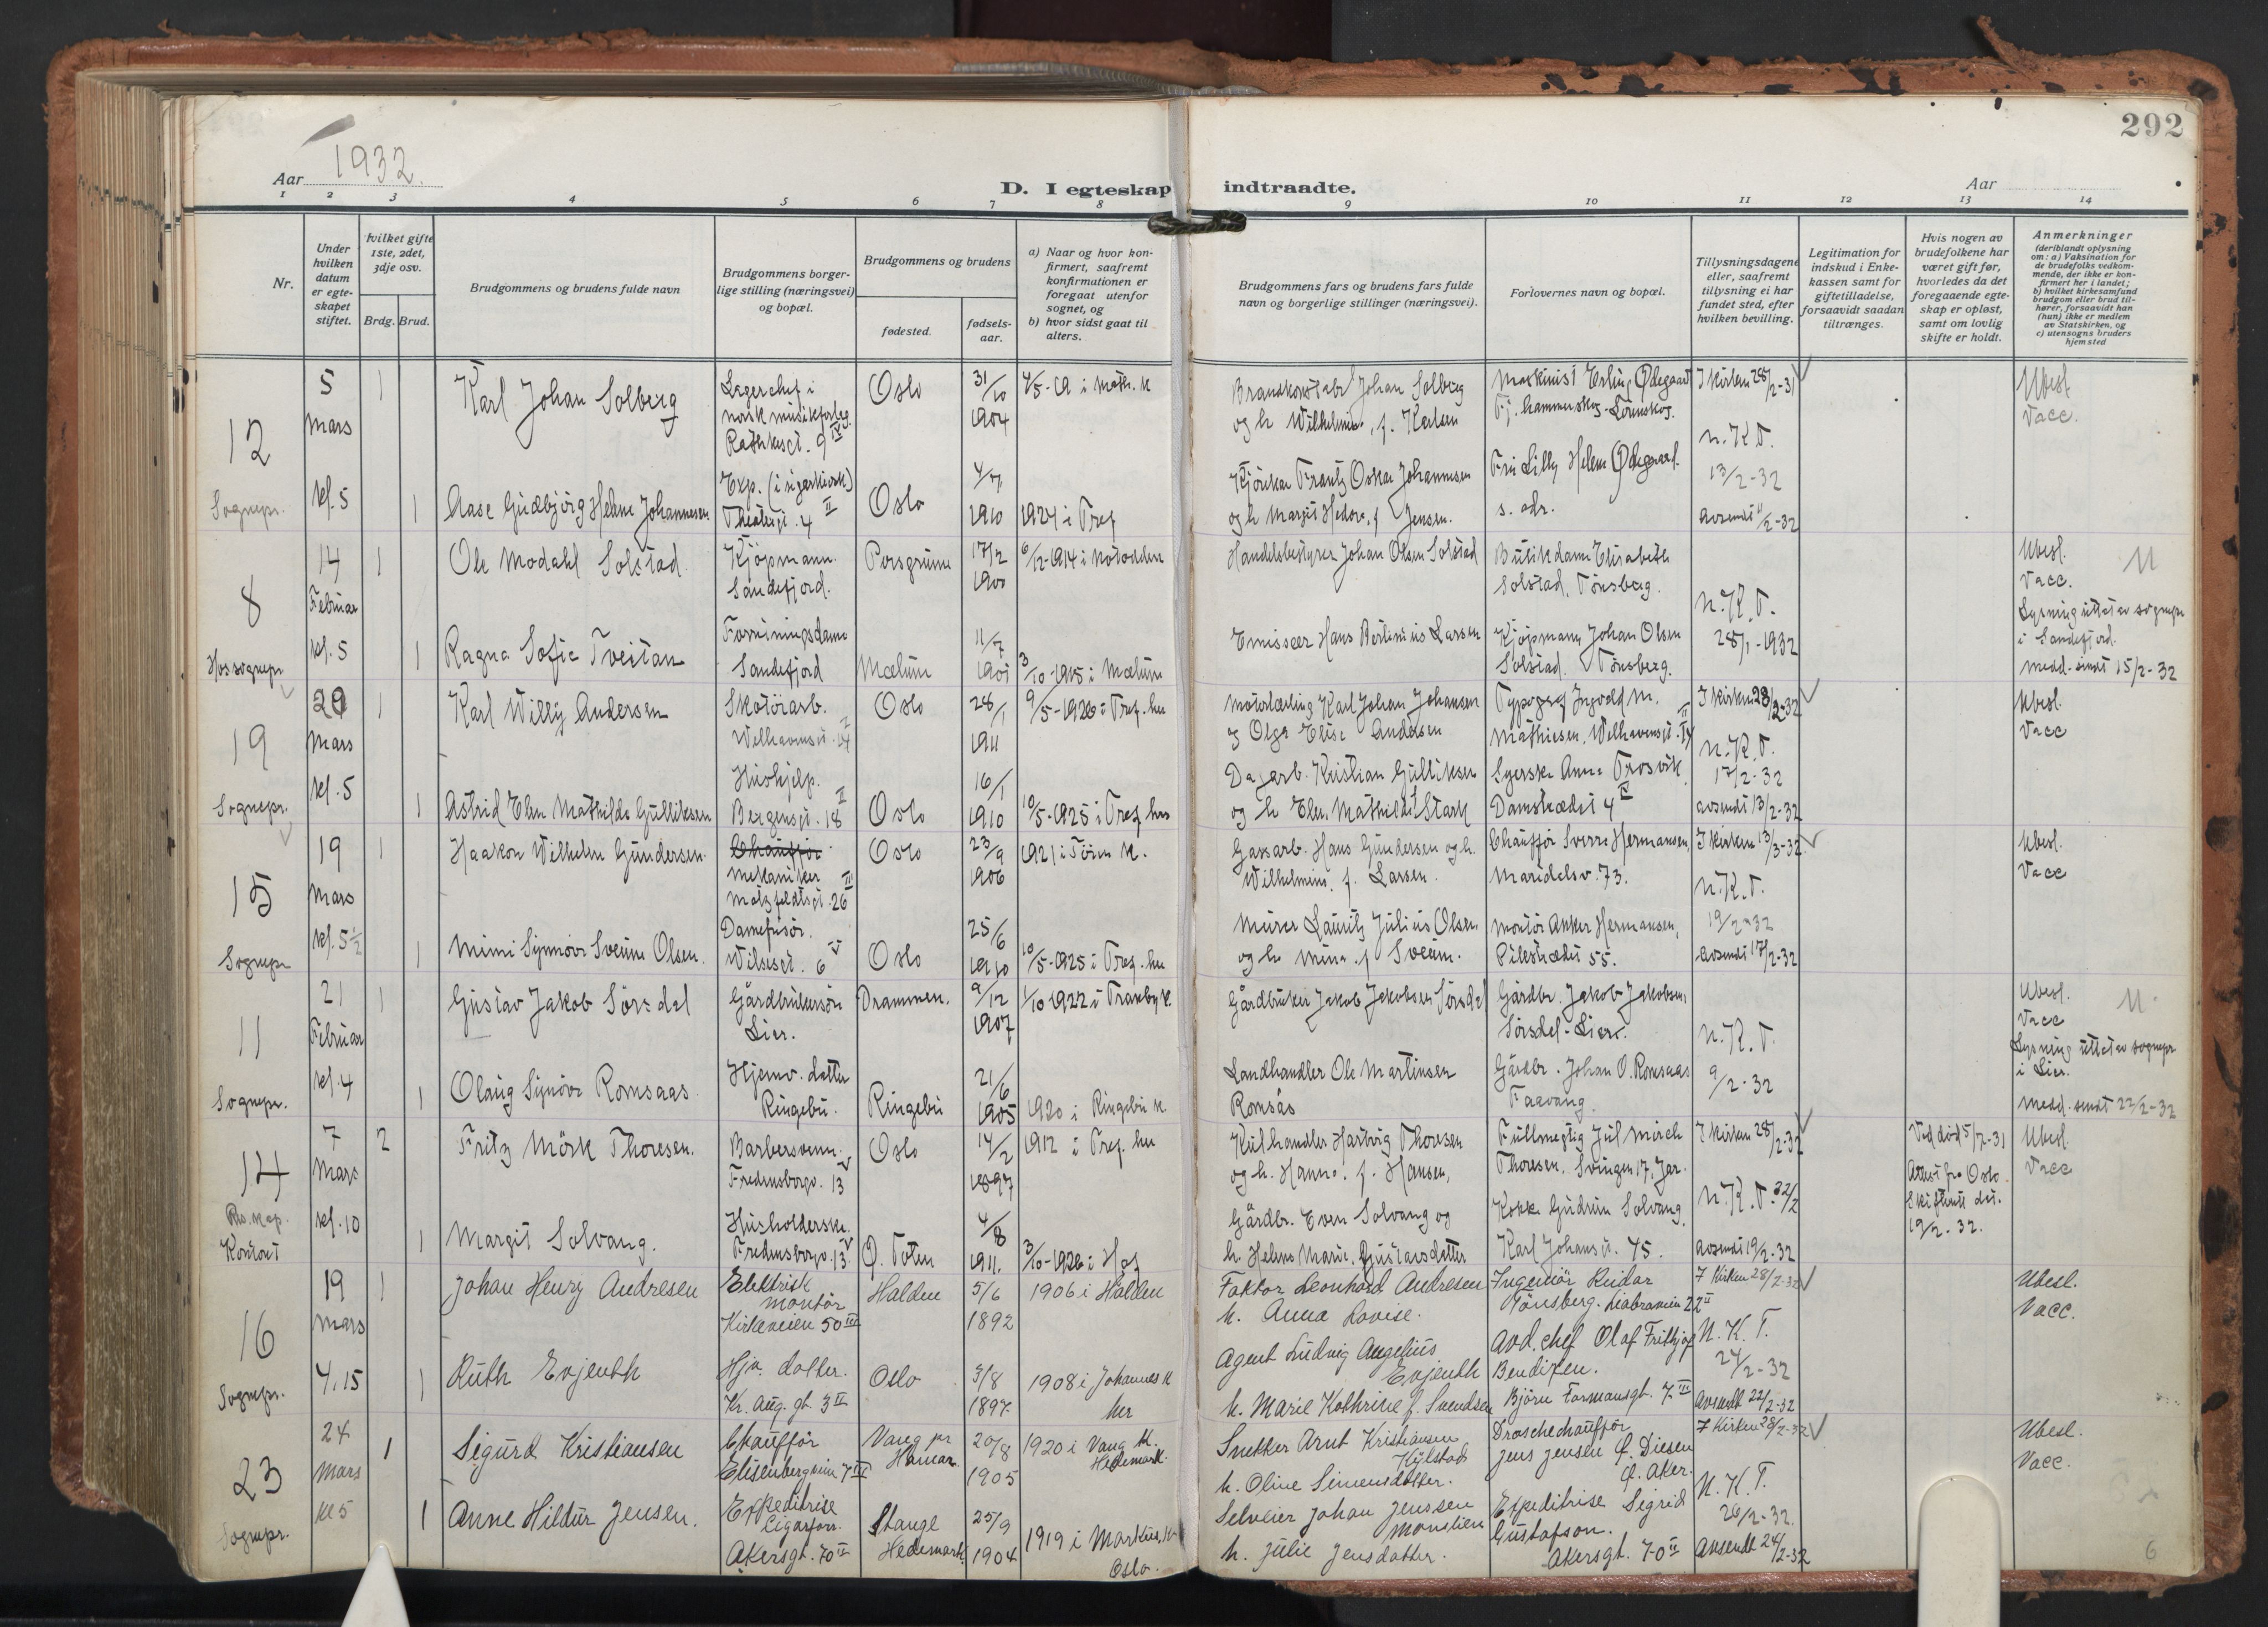 292
Aar 1932.
D. I egteskap indtraadte.
Aar
1 2 3 4 5 6 7 8 9 10 11 12 13 14
Nr.
Under hvilken datum er egteskapet stiftet.
Hvilket gifte 1ste, 2det, 3dje osv.
Brdg. Brud.
Brudgommens og brudens fulde navn
Brudgommens borgerlige stilling (næringsvei) og bopæl.
Brudgommens og brudens
fødested.
fødsels-aar.
a) Naar og hvor konfirmert, saafremt konfirmationen er foregaat utenfor sognet, og
b) hvor sidst gaat til alters.
Brudgommens fars og brudens fars fulde navn og borgerlige stillinger (næringsvei).
Forlovernes navn og bopæl.
Tillysningsdagene eller, saafremt tillysning ei har fundet sted, efter hvilken bevilling.
Legitimation for indskud i Enkekassen samt for giftetilladelse, forsaavidt saadan tiltrænges.
Hvis nogen av brudefolkene har været gift før, hvorledes da det foregaaende egteskap er opløst, samt om lovlig skifte er holdt.
Anmerkninger
(deriblandt oplysning om: a) Vaksination for de brudefolks vedkommende, der ikke er konfirmert her i landet; b) hvilket kirkesamfund brudgom eller brud tilhører, forsaavidt han (hun) ikke er medlem av Statskirken, og c) utensogns bruders hjemsted
12
Sognepr.
5 Mars kl. 5
1
Karl Johan Solberg
Lagerchef i norsk musikforlag. Rathkesgt. 9 IV
Oslo
31/10 1904
Johan Solberg og h Wilhelmine, f. Karlsen
Maskinist Erling Ødegaard
I kirken 28/2-31
Ubesl. Vacc.
1
Aase Gudbjörg Helene Johannesen
Exp. (i sigarkiosk) Theatergt. 4 II
Oslo
4/7 1910
1924 i Tref
Frantz Oskar Johannesen og h Margit Hedvv, f Jensen.
Frü Lilly Helene Ødegaard. s. adr.
N.K.T. 13/2-32 avsendt 11/2-32
8
Hos sognepr
14 Februar kl. 5
1
Ole Modahl Solstad
Kjöpmann. Sandefjord.
Porsgrunn
17/2 1900
6/12-1914 i Notodden
Handelsbestyrer Johan Olsen Solstad
Butikdame Elisabeth Solstad, Tönsberg.
Ubesl. Vacc. Lysning uttat av sognepr i Sandefjord. Medd. sendt 15/2-32
1
Ragna Sofie Tveitan
Forretningsdame Sandefjord
Mælum
11/7 1901
3/10-1915 i Mælum
Emissær Hans Bertinius Larsen
Kjöpmann Johan Olsen Solstad. Tönsberg.
N.K.T. 28/1-1932
19
Sognepr.
29 Mars kl. 5
1
Karl Willy Andersen
Skotöiarb. Welhavensgt. 14 I
Oslo
28/1 1911
9/5-1926 i Tref. her
Karl Johan Johansen og Olga Elise Andersen
Typograf Ingvald M. Mathiesen, Welhavensgt. 14 II
I kirken 28/2-32
Ubesl. Vacc
1
Astrid Elen Mathilde Gulliksen
Hushjelp. Bergensgt. 18 II
Oslo
16/1 1910
10/5-1925 i Tref her
Dagarb. Kristian Gulliksen og h Elen Mathilde f Stark
Syerske Anna Trosvik Damstrædet 4 IV
N.K.T. 17/2-32 avsendt 13/2-32
15
Sognepr
19 Mars kl. 5 1/2
1
Haakon Wilhelm Gundersen.
Chauffør. mekaniker Motzfeldtsgt. 26 III
Oslo
23/9 1906
1921 i Töien K.
Gassarb. Hans Gundersen og h. Wilhelmine, f. Larsen.
Chauffør Sverre Hermansen, Maridalsv. 73.
I kirken 13/3-32
Ubesl. Vacc
1
Mimi Synnöve Sveum Olsen.
Damefrisör. Wilsesgt. 6 V
Oslo
25/6 1910
10/5-1925 i Tref. her
Murer Lauritz Julius Olsen og h Mina f Sveum.
Montör Anker Hermansen, Pilestrædet 55.
N.K.T. 19/2-32 avsendt 17/2-32
11
Sognepr.
21 Februar kl. 4
1
Gustav Jakob Sörsdal
Gårdbrukersön Lier.
Drammen.
9/12 1907
1/10 1922 i Tranby k.
Gårdbruker Jakob Jakobsen Sörsdal
Gårdbr. Jakob Jakobsen Sörsdal-Lier.
Ubesl. Vacc Lysning uttat av sognepr i Lier. Medd. sendt 22/2-32
1
Olaug Synöve Romsaas
Hjemv. datter Ringebu.
Ringebu
21/6 1905
1920 i Ringebu K
Landhandler Ole Martinsen Romsås
Gårdbr. Johan O. Romsaas Faavang.
N.K.T. 9/2-32
14
Res. kap. Kontoret
7 Mars kl. 10
2
Fritz Mörk Thoresen.
Barbersvenn. Fredensborgv. 13 V
Oslo
14/2 1897
1912 i Tref. her
Kulhandler Hartvig Thoresen og h. Hanna f. Hansen,
Fullmegtig Jul Mörch Thoresen, Svingen 17, Jar.
I kirken 28/2-32
Ved död 5/7-31 Attest fra Oslo Skifterett dat. 19/2-32.
Ubesl. Vacc
1
Margit Solvang.
Husholderske. Fredensborgv. 13 V
Ø. Toten
4/8 1911.
3/10-1926 i Hof
Gårdbr. Even Solvang og h. Helene Marie Gustavsdatter
Kokke Gudrun Solvang, Karl Johansgt. 45.
N.K.T. 22/2 avsendt 19/2-32
16
Sognepr.
19 Mars 4.15
1
Johan Henry Andresen
Elektrisk montör Kirkeveien 50 III
Halden
5/6 1892
1906 i Halden
Faktor Leonhard Andresen h. Anna Lovise.
Ingeniör Reidar Tönsberg. Liabraveien 22 II
I Kirken 28/2-32
Ubesl. Vacc.
1
Ruth Evjenth
Hjv. datter. Kr. Aug. gt. 3 II
Oslo
3/8 1894.
1908 i Johannes K her
Agent Ludvig Angelius Evjenth h. Marie Kathrine f. Svendsen
Avd. chef Olaf Frithjof Bendixen. Björn Farmansgt. 7 III
N.K.T. 24/2-32 Avsendt 22/2-32
23
Sognepr.
24 Mars kl 5
1
Sigurd Kristiansen
Chauffør Elisenbergveien 7 III
Vang pr Hamar.
20/8 1905
1920 i Vang K. Hedemark.
Snekker Arnt Kristiansen Kylstad h. Oline Simensdatter.
Droschechauffør Jens Jensen Ø. Diesen Ø. Aker.
I Kirken 28/2-32
Ubesl. Vacc.
1
Anne Hildur Jensen.
Expeditrise Cigarforr. Akersgt. 70 II
Stange Hedemark
25/9 1904
1919 i Markus K Oslo.
Selveier Johan Jenssen Monslien h. Julie Jensdatter.
Expeditrise Sigrid Gustafson. Akersgt. 70 II
N.K.T. 26/2-32. Avsendt 24/2-32
6